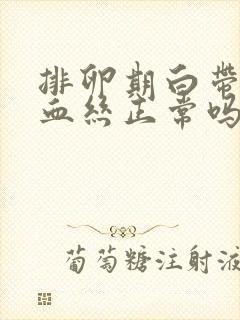 排卵期白带
血丝正常吗
葡萄糖注射液